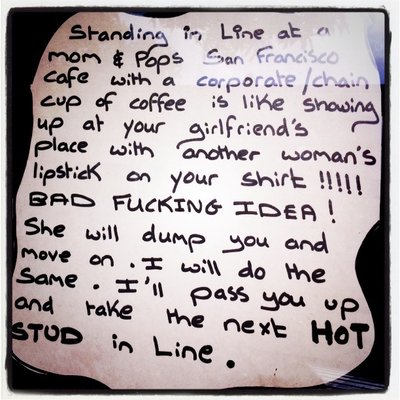 Standing in Line at a
mom & Pops San Francisco
cafe with a corporate/chain
cup of coffee is like showing
up at your girlfriend's
place with another woman's
lipstick on your shirt !!!!!
BAD FUCKING IDEA!
She will dump you and
move on. I will do the
Same. I'll pass you up
and take the next HOT
STUD in Line.